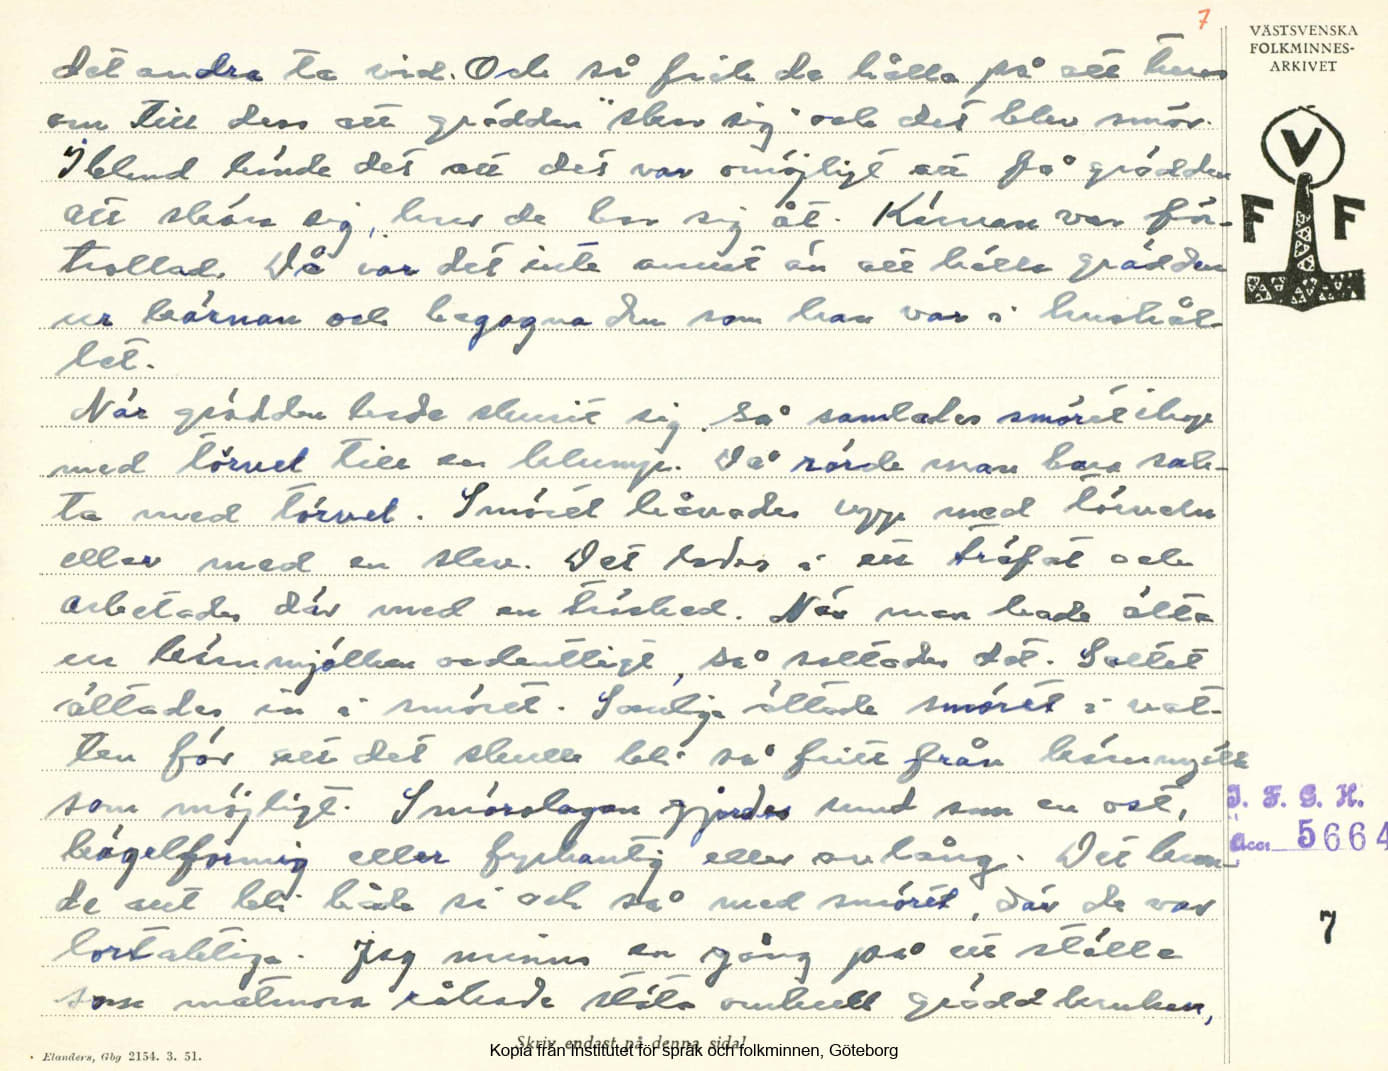 7
VÄSTSVENSKA
FOLKMINNES-
ARKIVET
V
F F
det andra ta vid. Och så fick de hålla på att kerna
om till dess att grädden "skar sig" och det blev smör.
Ibland hände det att det var omöjligt att få grädden
att skära sig, hur de bar sig åt. Kärnan var för-
trollad. Då var det inte annat än att hälla grädden
ur kärnan och begagna den som han var i hushål-
let.
När grädden hade skurit sig så samlades smöret ihop
med törvel till en klump. Då rörde man bara sak-
ta med törvel. Smöret håvades upp med törveln
eller med en slev. Det lades i ett träfat och
arbetades där med en träsked. När man hade älta
ur kärnmjölken ordentligt, så saltades det. Saltet
ältades in i smöret. Somliga ältade smöret i vat-
ten för att det skulle bli så fritt från kärnmjölk
som möjligt. Smörslagan gjordes rund som en ost,
kägelformig eller fyrkantig eller avlång. Det kun-
de sitt bli både si och så med smöret, där de var
lortaktiga. Jag minns en gång på ett ställe
som matmora råkade stöta omkull gräddkruken,
I. F. G. H.
Acc. 5664
7
Skriv endast på denna sida!
Elanders, Gbg 2154. 3. 51.
Kopia från Institutet för språk och folkminnen, Göteborg